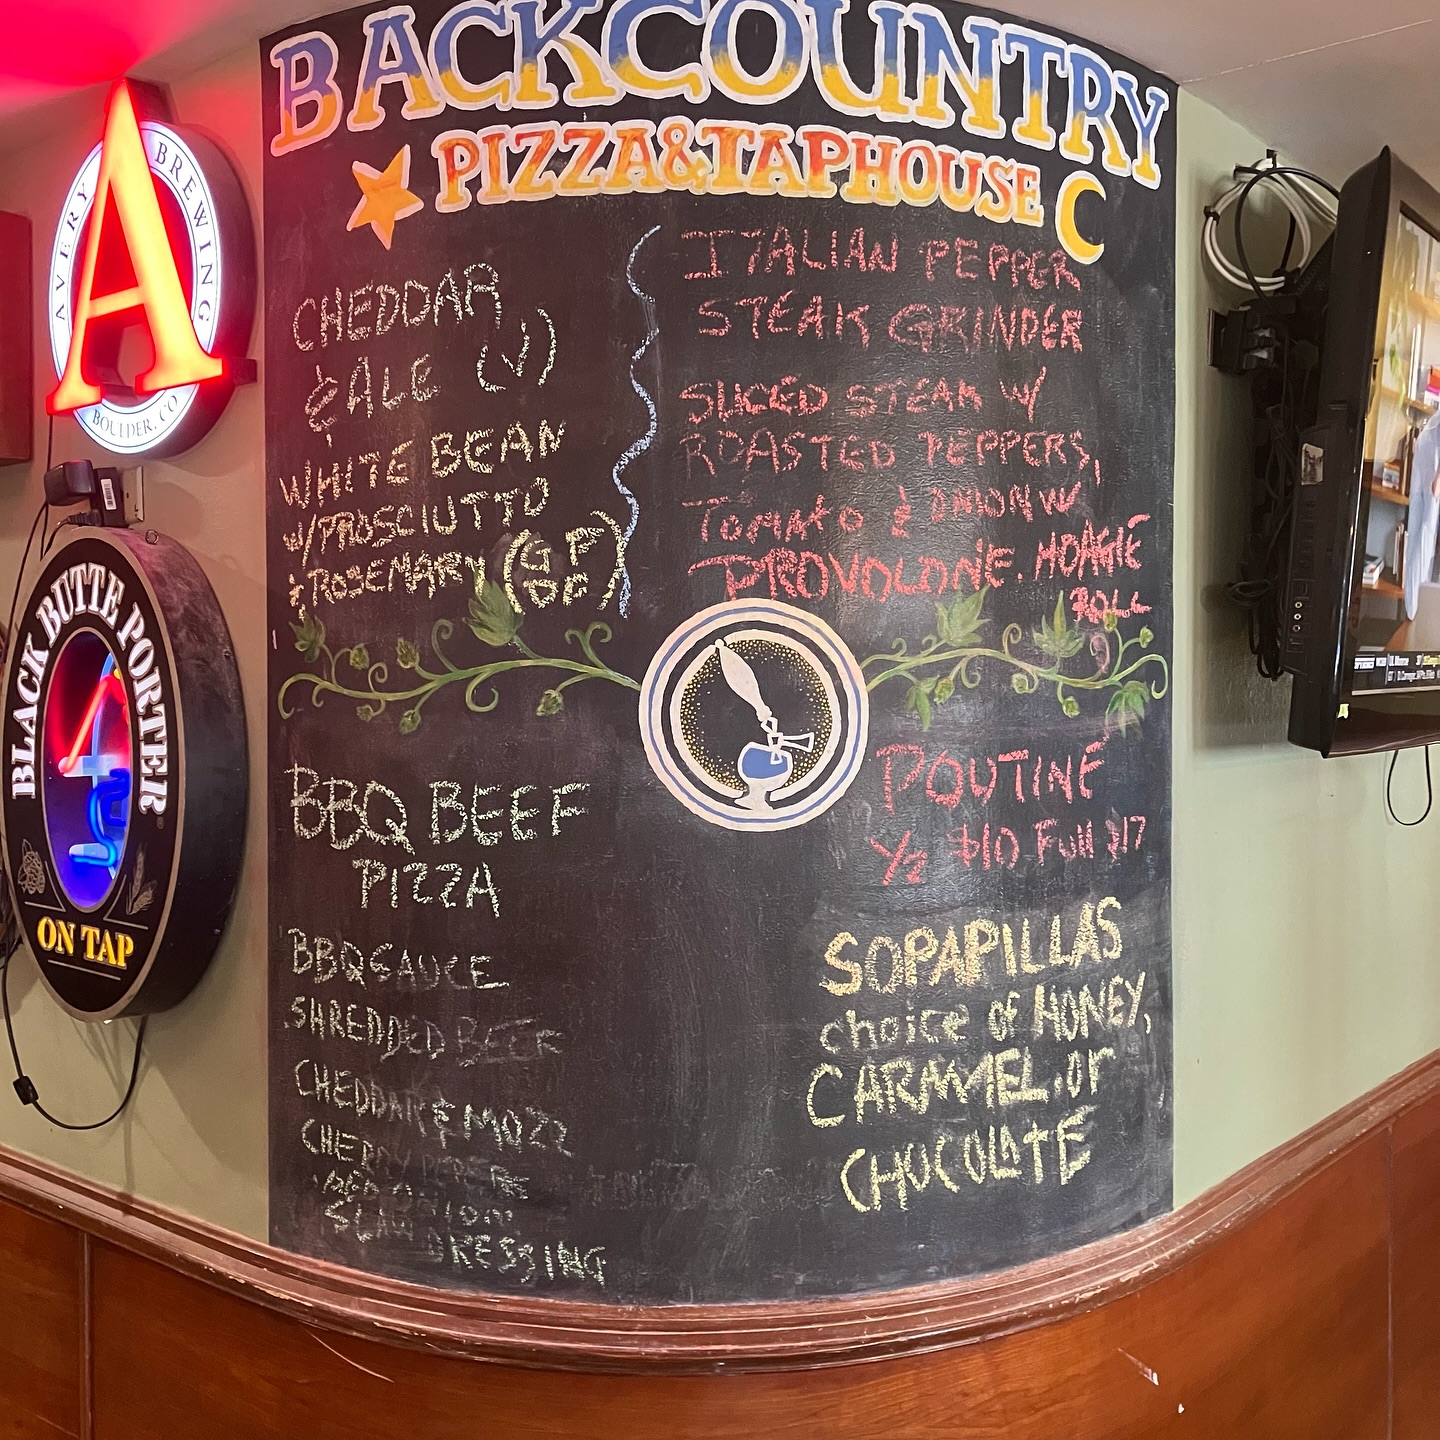 BACKCOUNTRY
PIZZA & TAPHOUSE
CHEDDAR
& ALE (V)
WHITE BEAN
W/PROSCIUTTO
& ROSEMARY (GF DF)
ITALIAN PEPPER
STEAK GRINDER
SLICED STEAK W/
ROASTED PEPPERS,
TOMATO & ONION W
PROVOLONE. HOAGIE
ROLL
BBQ BEEF
PIZZA
BBQ SAUCE
SHREDDED BEEF
CHEDDAR & MOZZ
CHERRY PEPPERS
RED ONION
SLAW DRESSING
POUTINE
1/2 $10 Full $17
SOPAPILLAS
choice of HONEY,
CARAMEL, or
CHOCOLATE
AVERY BREWING
A
BOULDER, CO
BLACK BUTTE PORTER
ON TAP